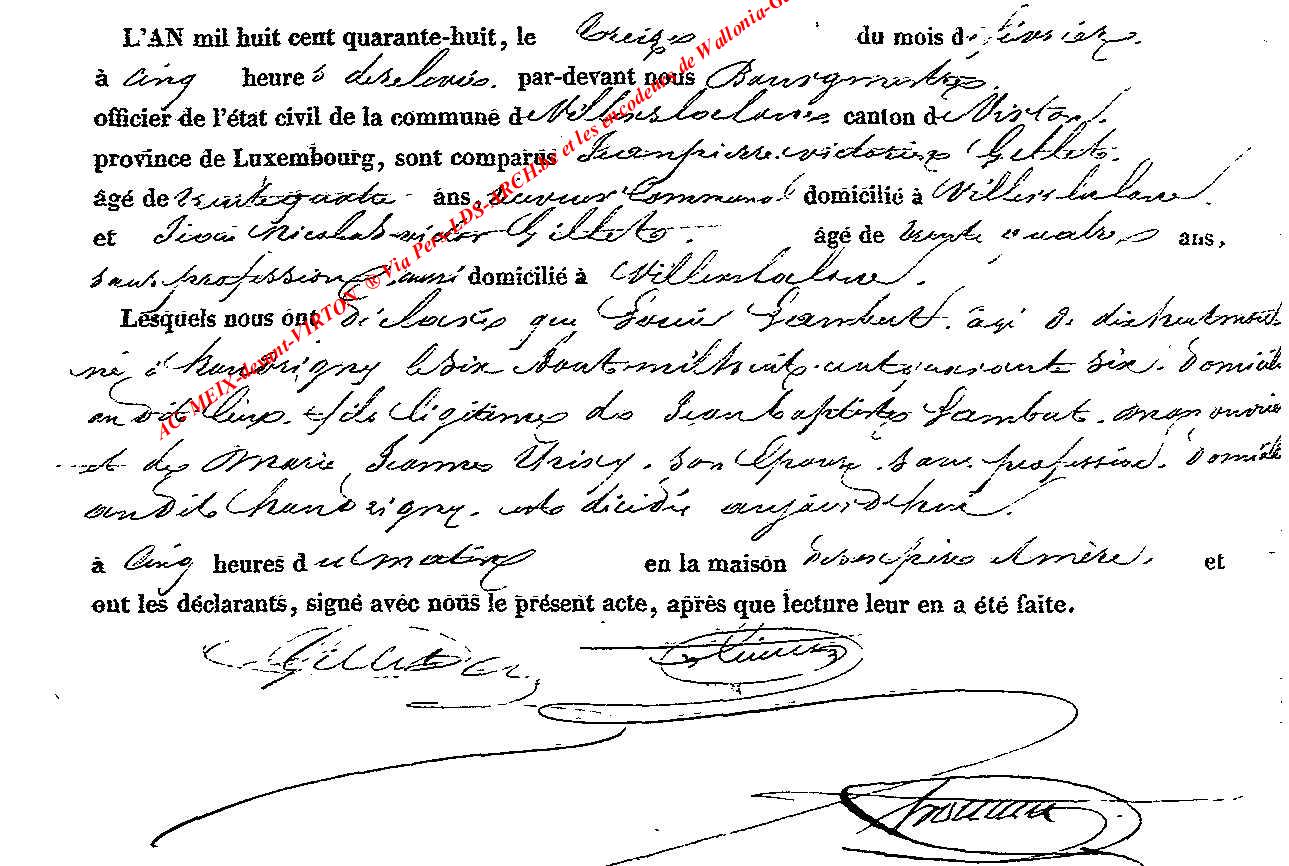 L'AN mil huit cent quarante-huit, le treize du mois de février.
à Cinq heures de relevée. par-devant nous Bourgmestre
officier de l'état civil de la commune de Villerslaloue canton de Virton.
province de Luxembourg, sont comparus Jean pierre victorien Gillet.
âgé de ans, Receveur Communal domicilié à Villerslaloue.
et Jean Nicolas victor Gillet. âgé de trente quatre ans,
sans profession aussi domicilié à Villerslaloue.
Lesquels nous ont déclaré que Louis Lambert. agé de dixhuit mois
né à houdrigny le six Aout mil huit cent quarante six. domicilié
au dit lieu. fils légitime de Jean baptiste Lambert. ouvrier
et de Marie Jeanne son Epouse. sans profession. domiciliés
au dit houdrigny. est décédé aujourd'hui.
à Cinq heures du matin en la maison de ses père et mère. et
ont les déclarants, signé avec nous le présent acte, après que lecture leur en a été faite.
Gillet
AC MEIX-devant-VIRTON ® Via Pers-LDS-ARCH.be et les encodeurs de Wallonia-G